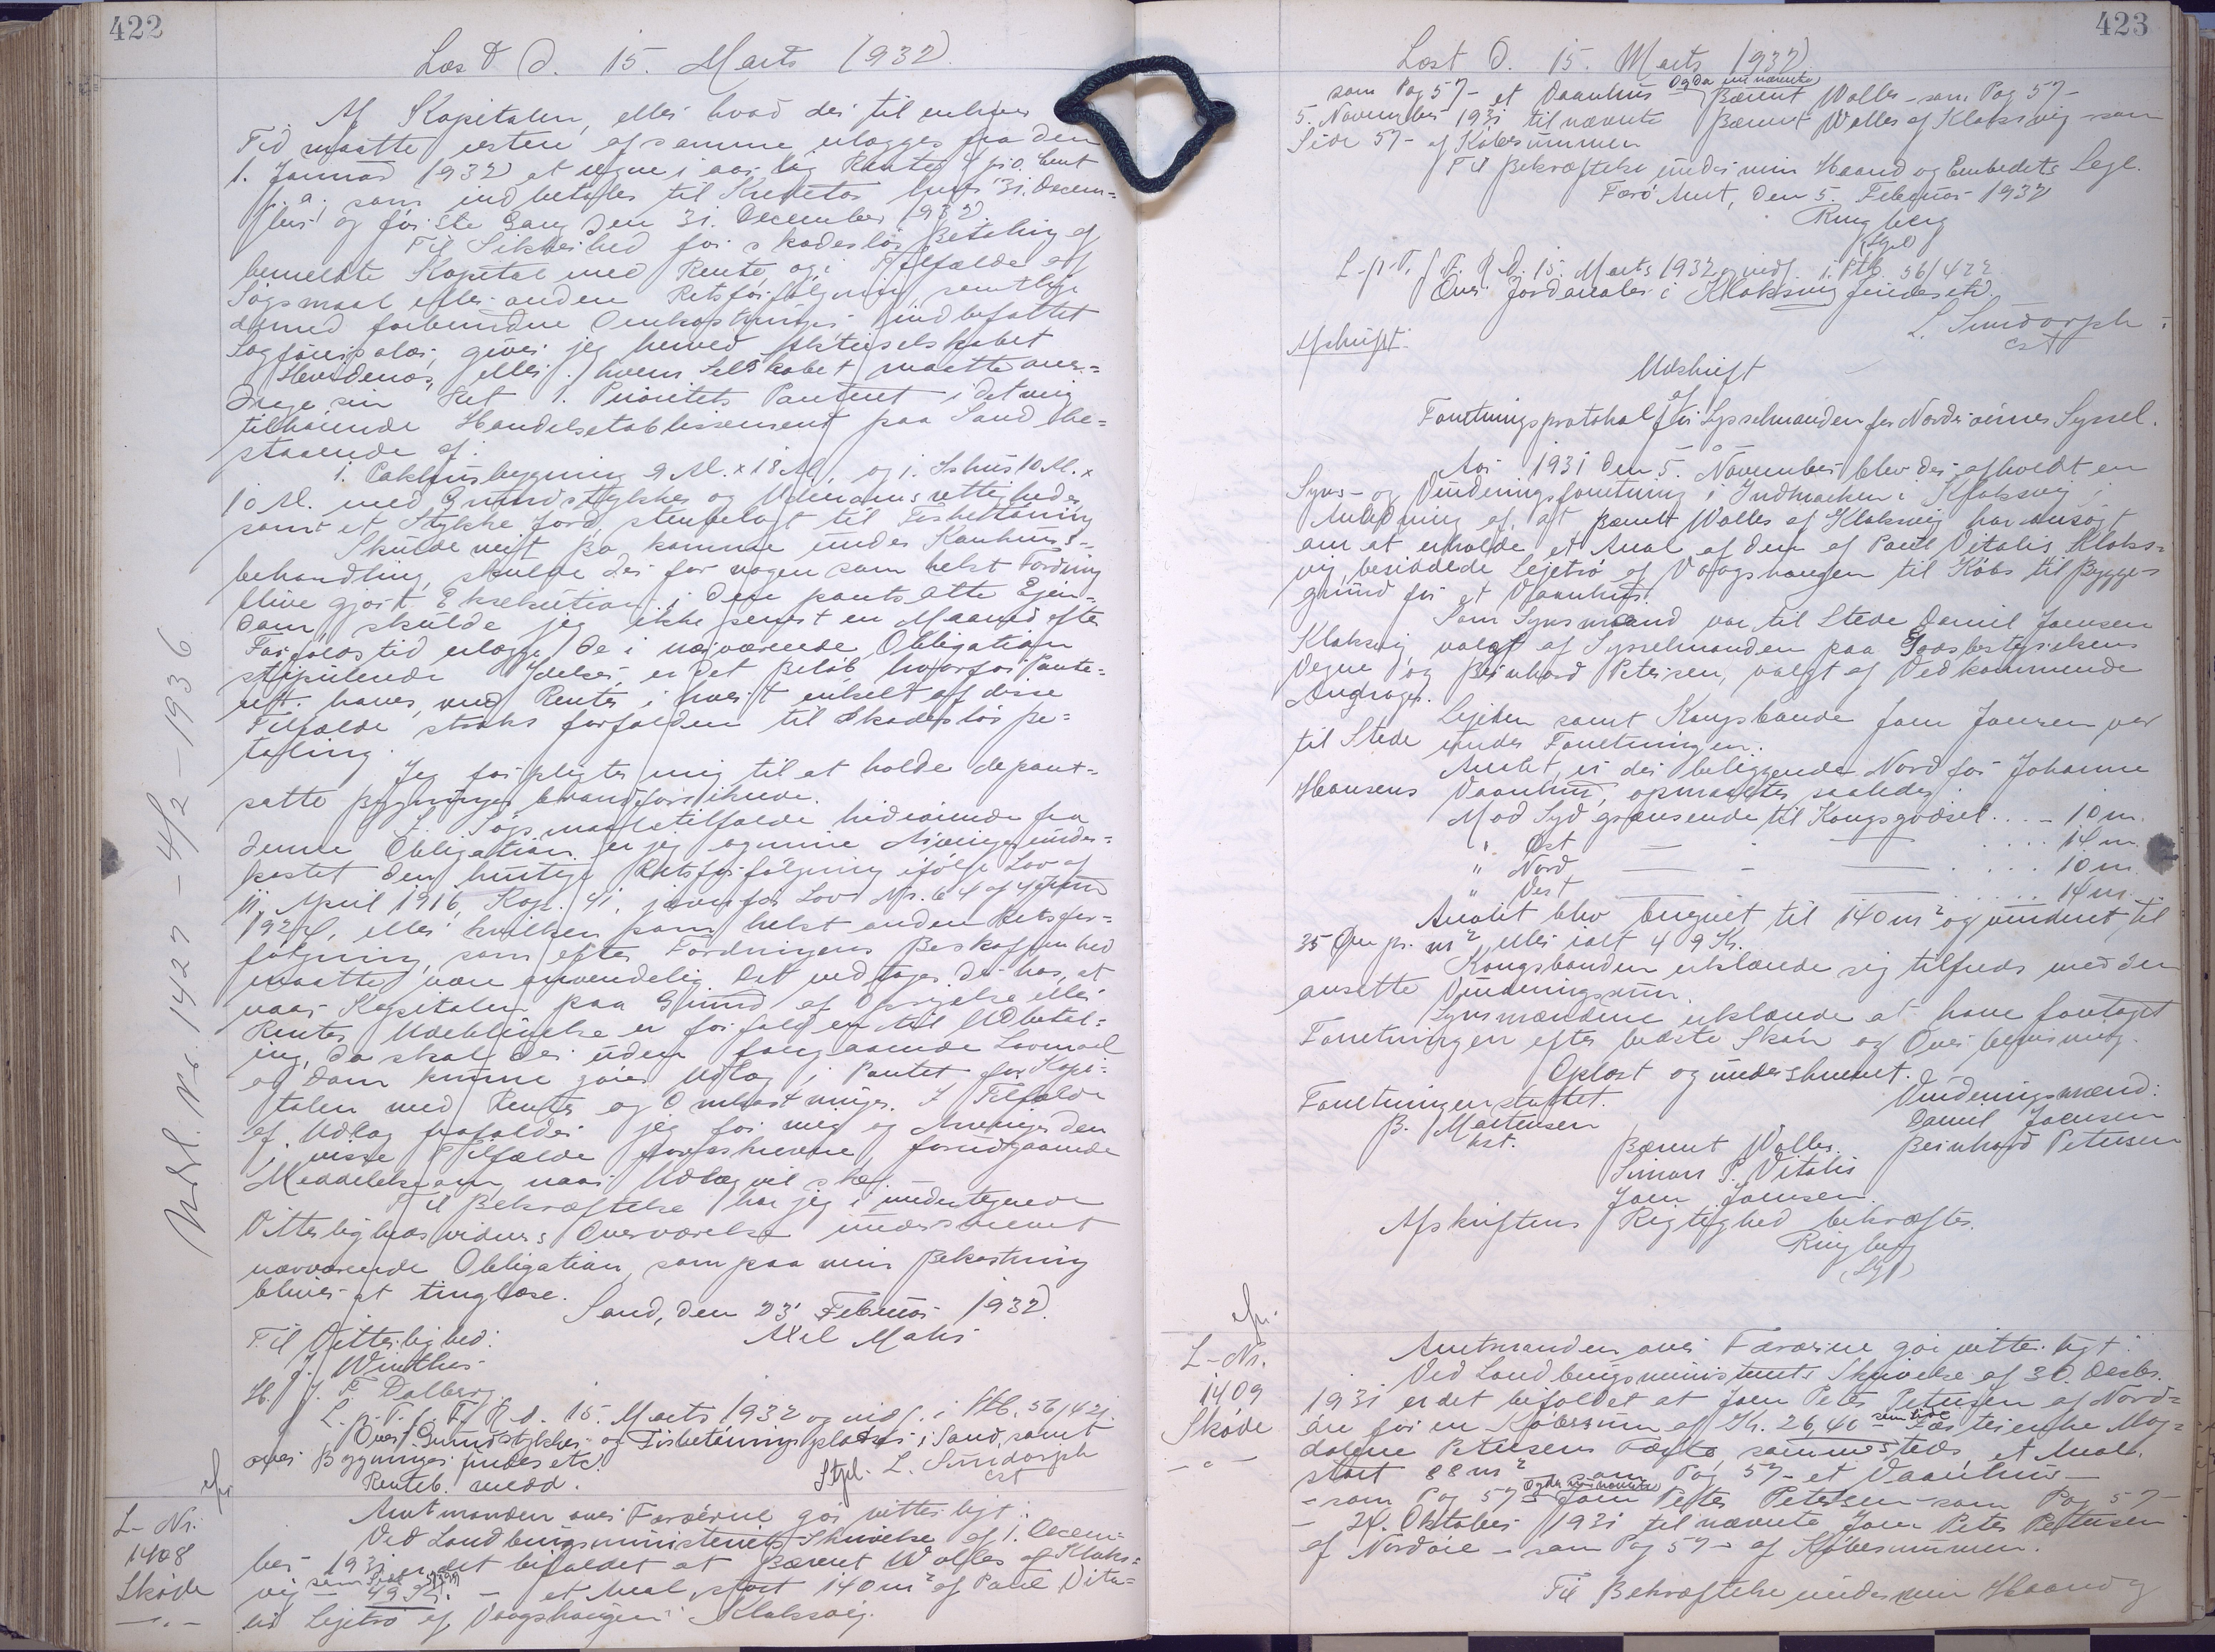 422
Læst d. 15. Marts 1932
Af Kapitalen, eller hvad der til enhver
Tid maatte restere af samme erlægges fra den
1. Januar 1932 at regne i aarlig Rente 4 pro Cent
p. a. som indbetales til Kreditor hver 31. Decem=
ber og første Gang den 31. December 1932.
Til Sikkerhed for skadesløs Betaling af
bemeldte Kapital med Rente og i Tilfælde af
Søgsmaal eller anden Retsforfølgning samtlige
dermed forbundne Omkostninger indbefattet
Sagførersalær, giver jeg herved Aktieselskabet
eller hvem Selskabet maatte over=
drage sin Ret 1. Prioritets Panteret i det mig
tilhørende Handelsetablissement paa Sand be=
staaende af:
1. Pakhusbygning 9 M. x 18 M. og 1. Ishus 10 M. x
10 M. med Grundstykker og Udenomsrettigheder
samt et Stykke Jord, stenbelagt til Fisketørring
Skulde mit Bo komme under Konkurs=
behandling, skulde der for nogen som helst Fordring
blive gjort Eksekution i den pantsatte Ejen=
dom, skulde jeg ikke senest en Maaned efter
Forfaldstid erlægge de i nærværende Obligation
stipulerede Ydelser, er det Beløb, hvorfor Pante=
ret haves, med Renter i hvert enkelt af disse
Tilfælde straks forfalden til skadesløs Be=
taling.
Jeg forpligter mig til at holde de pant=
satte Bygninger brandforsikrede.
I Søgsmaalstilfælde hidrørende fra
denne Obligation er jeg og mine Arvinger under=
kastet den hurtige Retsforfølgning ifølge Lov af
11. April 1916, Kap. 41, jævnfør Lov Nr. 64 af
eller hvilken som helst anden Retsfor=
følgning, som efter Fordringens Beskaffenhed
maatte være anvendelig. Det vedtages derhos, at
naar Kapitalen paa Grund af Opsigelse eller
Renters Udeblivelse er forfalden til Udbetal=
ing, da skal der uden foregaaende Lovmaal
og Dom kunne gøres Udlæg i Pantet for Kapi=
talen med Renter og Omkostninger. I Tilfælde
af Udlæg frafalder jeg for mig og Arvinger den
i visse Tilfælde foreskrevne, forudgaaende
Meddelelse om, naar Udlæg vil ske.
Til Bekræftelse har jeg i undertegnede
Vitterlighedsvidners Overværelse underskrevet
nærværende Obligation, som paa min Bekostning
bliver at tinglæse.
Sand, den 23' Februar 1932.
Til Vitterlighed: Axel Mohr
J. Winther
H. J. F. Dalberg
L. p. T. f. F. R. d. 15. Marts 1932 og indf. i Ptb. 56/421.
Over Grundstykker og Fisketørringspladser i Sand, samt
over Bygninger findes etc.
Renteb. medd. Stpl. L. Sundorph
cst
Udsl. No. 1427 - 4/2 - 1936
L-Nr.
1408
Skøde
- " -
Amtmanden over Færøerne gør vitterligt:
Ved Landbrugsministeriets Skrivelse af 1. Decem=
ber 1931 er det bifaldet at Bærent Walles af Klaks=
vig som Side 57
49 Kr. - et Areal, stort 140 m² af Paul Vita=
lis Lejetrø af Vaagshaugen i Klaksvig.
423
Læst d. 15. Marts 1932
Og da nu nævnte
som Pag 57 - et Vaanhus Bærent Walles - som Pag 57 -
5. November 1931 til nævnte Bærent Walles af Klaksvig - som
Side 57 - af Købesummen
Til Bekræftelse under min Haand og Embedets Segl.
Færø Amt, den 5. Februar 1932
Ringberg
(Sgl)
L. p. T. f. F. R. d. 15. Marts 1932 og indf. i Ptb. 56/422
Over Jordarealer i Klaksvig findes etc.
L. Sundorph
cst
Afskrift.
Udskrift
af
Forretningsprotokol for Sysselmanden for Norderøernes Syssel.
Aar 1931 den 5. November blev der afholdt en
Syns- og Vurderingsforretning i Indmarken i Klaksvig i
Anledning af, at Bærent Walles af Klaksvig har ansøgt
om at erholde et Areal af den af Paul Vitalis Klaks=
vig besiddede Lejetrø af Vaagshaugen til Købs til Bygge=
grund for et Vaanhus.
Som Synsmænd var til Stede Daniel Joensen
Klaksvig valgt af Sysselmanden paa Godsbestyrelsens
Vegne og Beinhard Petersen, valgt af Vedkommende
Andrager.
Lejeren samt Kongsbonde Joen Joensen var
til Stede under Forretningen.
Arealet, er der beliggende Nord for Johanne
Hansens Vaanhus, opmaaltes saaledes:
Mod Syd grænsende til Kongsgodset . . . - 10 m.
" Øst — " — . . . . 14 m.
" Nord — " — . . . . 10 m.
" Vest — — . . . . 14 m.
Arealet blev beregnet til 140 m² og vurderet til
35 Øre pr. m² eller ialt 49 Kr.
Kongsbonden erklærede sig tilfreds med den
ansatte Vurderingssum.
Synsmændene erklærede at have foretaget
Forretningen efter bedste Skøn og Overbevisning.
Oplæst og underskrevet.
Forretningen sluttet. Vurderingsmænd:
B. Mortensen Daniel Joensen
kst. Bærent Walles. Beinhard Petersen
Simon P. Vitalis
Joen Joensen.
Afskriftens Rigtighed bekræftes.
Ringberg
(Sgl)
L-Nr.
1409
Skøde
- " -
Amtmanden over Færøerne gør vitterligt:
Ved Landbrugsministeriets Skrivelse af 30. Decbr.
1931 er det bifaldet at Joen Peter Petersen af Nord=
øre for en Købesum af Kr. 26,40 - som Side - Mag=
dalene Petersens Fæste, sammesteds, et Areal,
stort 88 m² som Pag 57 - et Vaanhus -
Og da nu nævnte
- som Pag 57 - Joen Peter Petersen - som Pag 57 -
- 24. Oktober 1931 til nævnte Joen Peter Petersen
af Nordøre - som Pag 57 - af Købesummen.
Til Bekræftelse under min Haand og